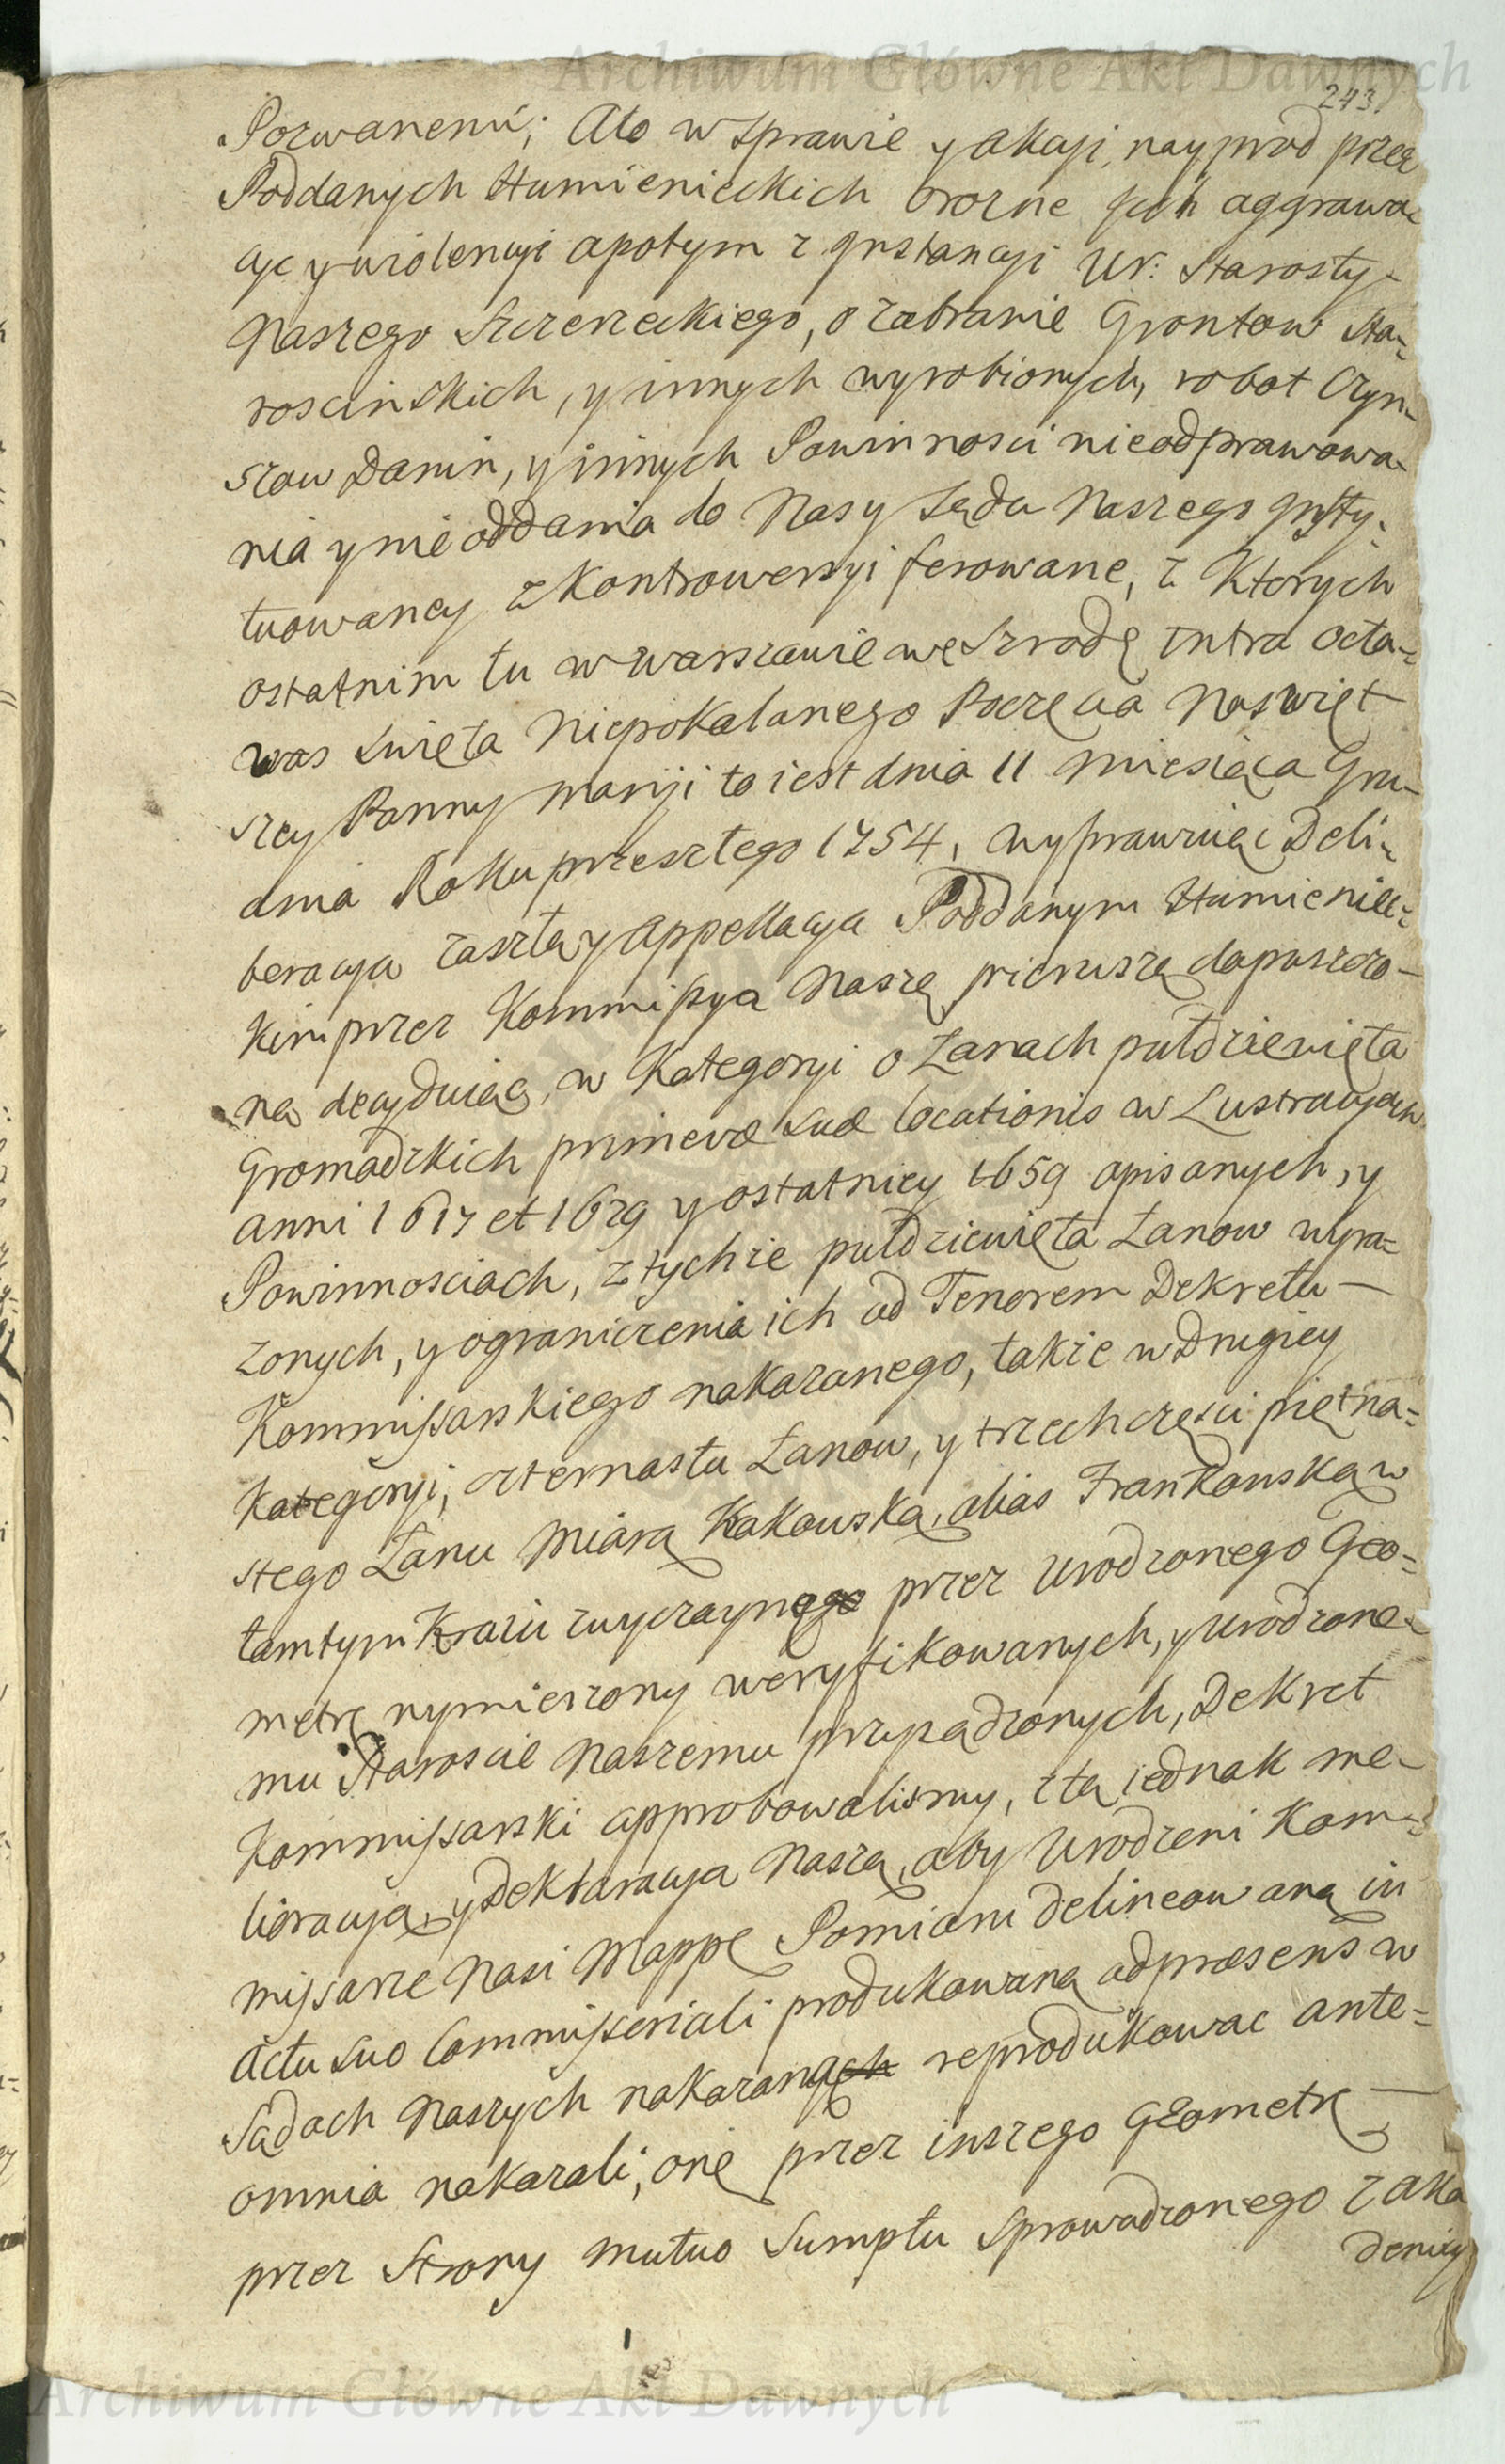 243.
Pozwanemi; Ato w Sprawie y akcyi, nayprzod przez
Poddanych Humienieckich Orozne ich aggrawa=
cye y wiolencyi apotym z Jnstancyi Ur: Starosty=
Naszego Szczerzeckiego, o zabranie Grontow Sta=
roscinskich, y innych wyrobionych, robot Czyn=
szow Danin, y innych Powinnosci nieodprawowa=
nia y nie oddania do Nas y Sądu Naszego Jnsty=
tuowaney z Kontrowersyi ferowane, z Ktorych
ostatnim tu w warszawie we Srzodę intra octa=
was Swięta Niepokalanego Poczęcia Nayswięt=
szey Panny maryi to iest dnia 11 Miesiąca Gru=
dnia Roku przeszłego 1754, Wyprawuiąc Deli=
beracya zaszłą y appellacya Poddanym Humieniec=
kim przez Kommissya Naszę pierwszą dopuszczo=
ną decyduiąc, w Kategoryi o Łanach pułdziewięta
Gromadzkich primevæ suæ locationis w Lustracyach
anni 1617 et 1629 y ostatniey 1659 opisanych, y
Powinnosciach, z tychże pułdziewięta Łanow wyra=
żonych, y ograniczenia ich ad Tenorem Dekretu —
Kommissarskiego nakazanego, także w Drugiey
Kategoryi, czternastu Łanow, y trzech częsci piętna=
stego Łanu Miarą Krakowską, alias Frankowską w
tamtym Kraiu zwyczayną przez Urodzonego Geo=
metrę wymierzony weryfikowanych, y Urodzone=
mu Staroscie Naszemu przysądzonych, Dekret
Kommissarski approbowalismy, z tą iednak me=
lioracyą, y Deklaracya Naszą, aby Urodzeni Kom=
missarze Nasi Mappę Pomiaru delineowaną in
actu suo Commisseriali produkowaną adpræsens w
Sądach Naszych nakazaną reprodukowac ante=
omnia nakazali, onę przez inszego Geometrę —
przez Strony mutuo Sumptu Sprowadzonego z Aka
demiy
Archiwum Główne Akt Dawnych
Archiwum Główne Akt Dawnych